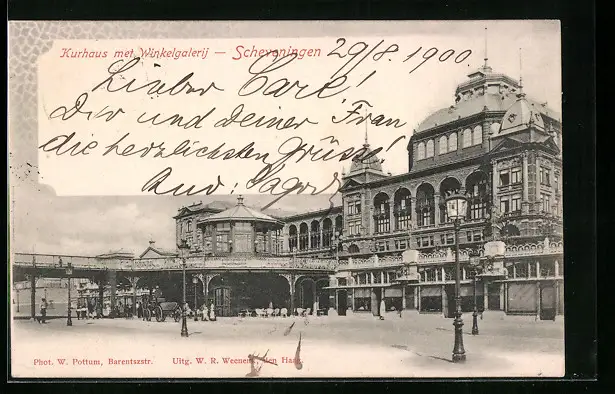 Kurhaus met Winkelgalerij — Scheveningen
29/8. 1900
Lieber Carl!
Dir und deiner Frau
die herzlichsten Grüsse
Phot. W. Pottum, Barentszstr. Uitg. W. R. Weenenk, den Haag.